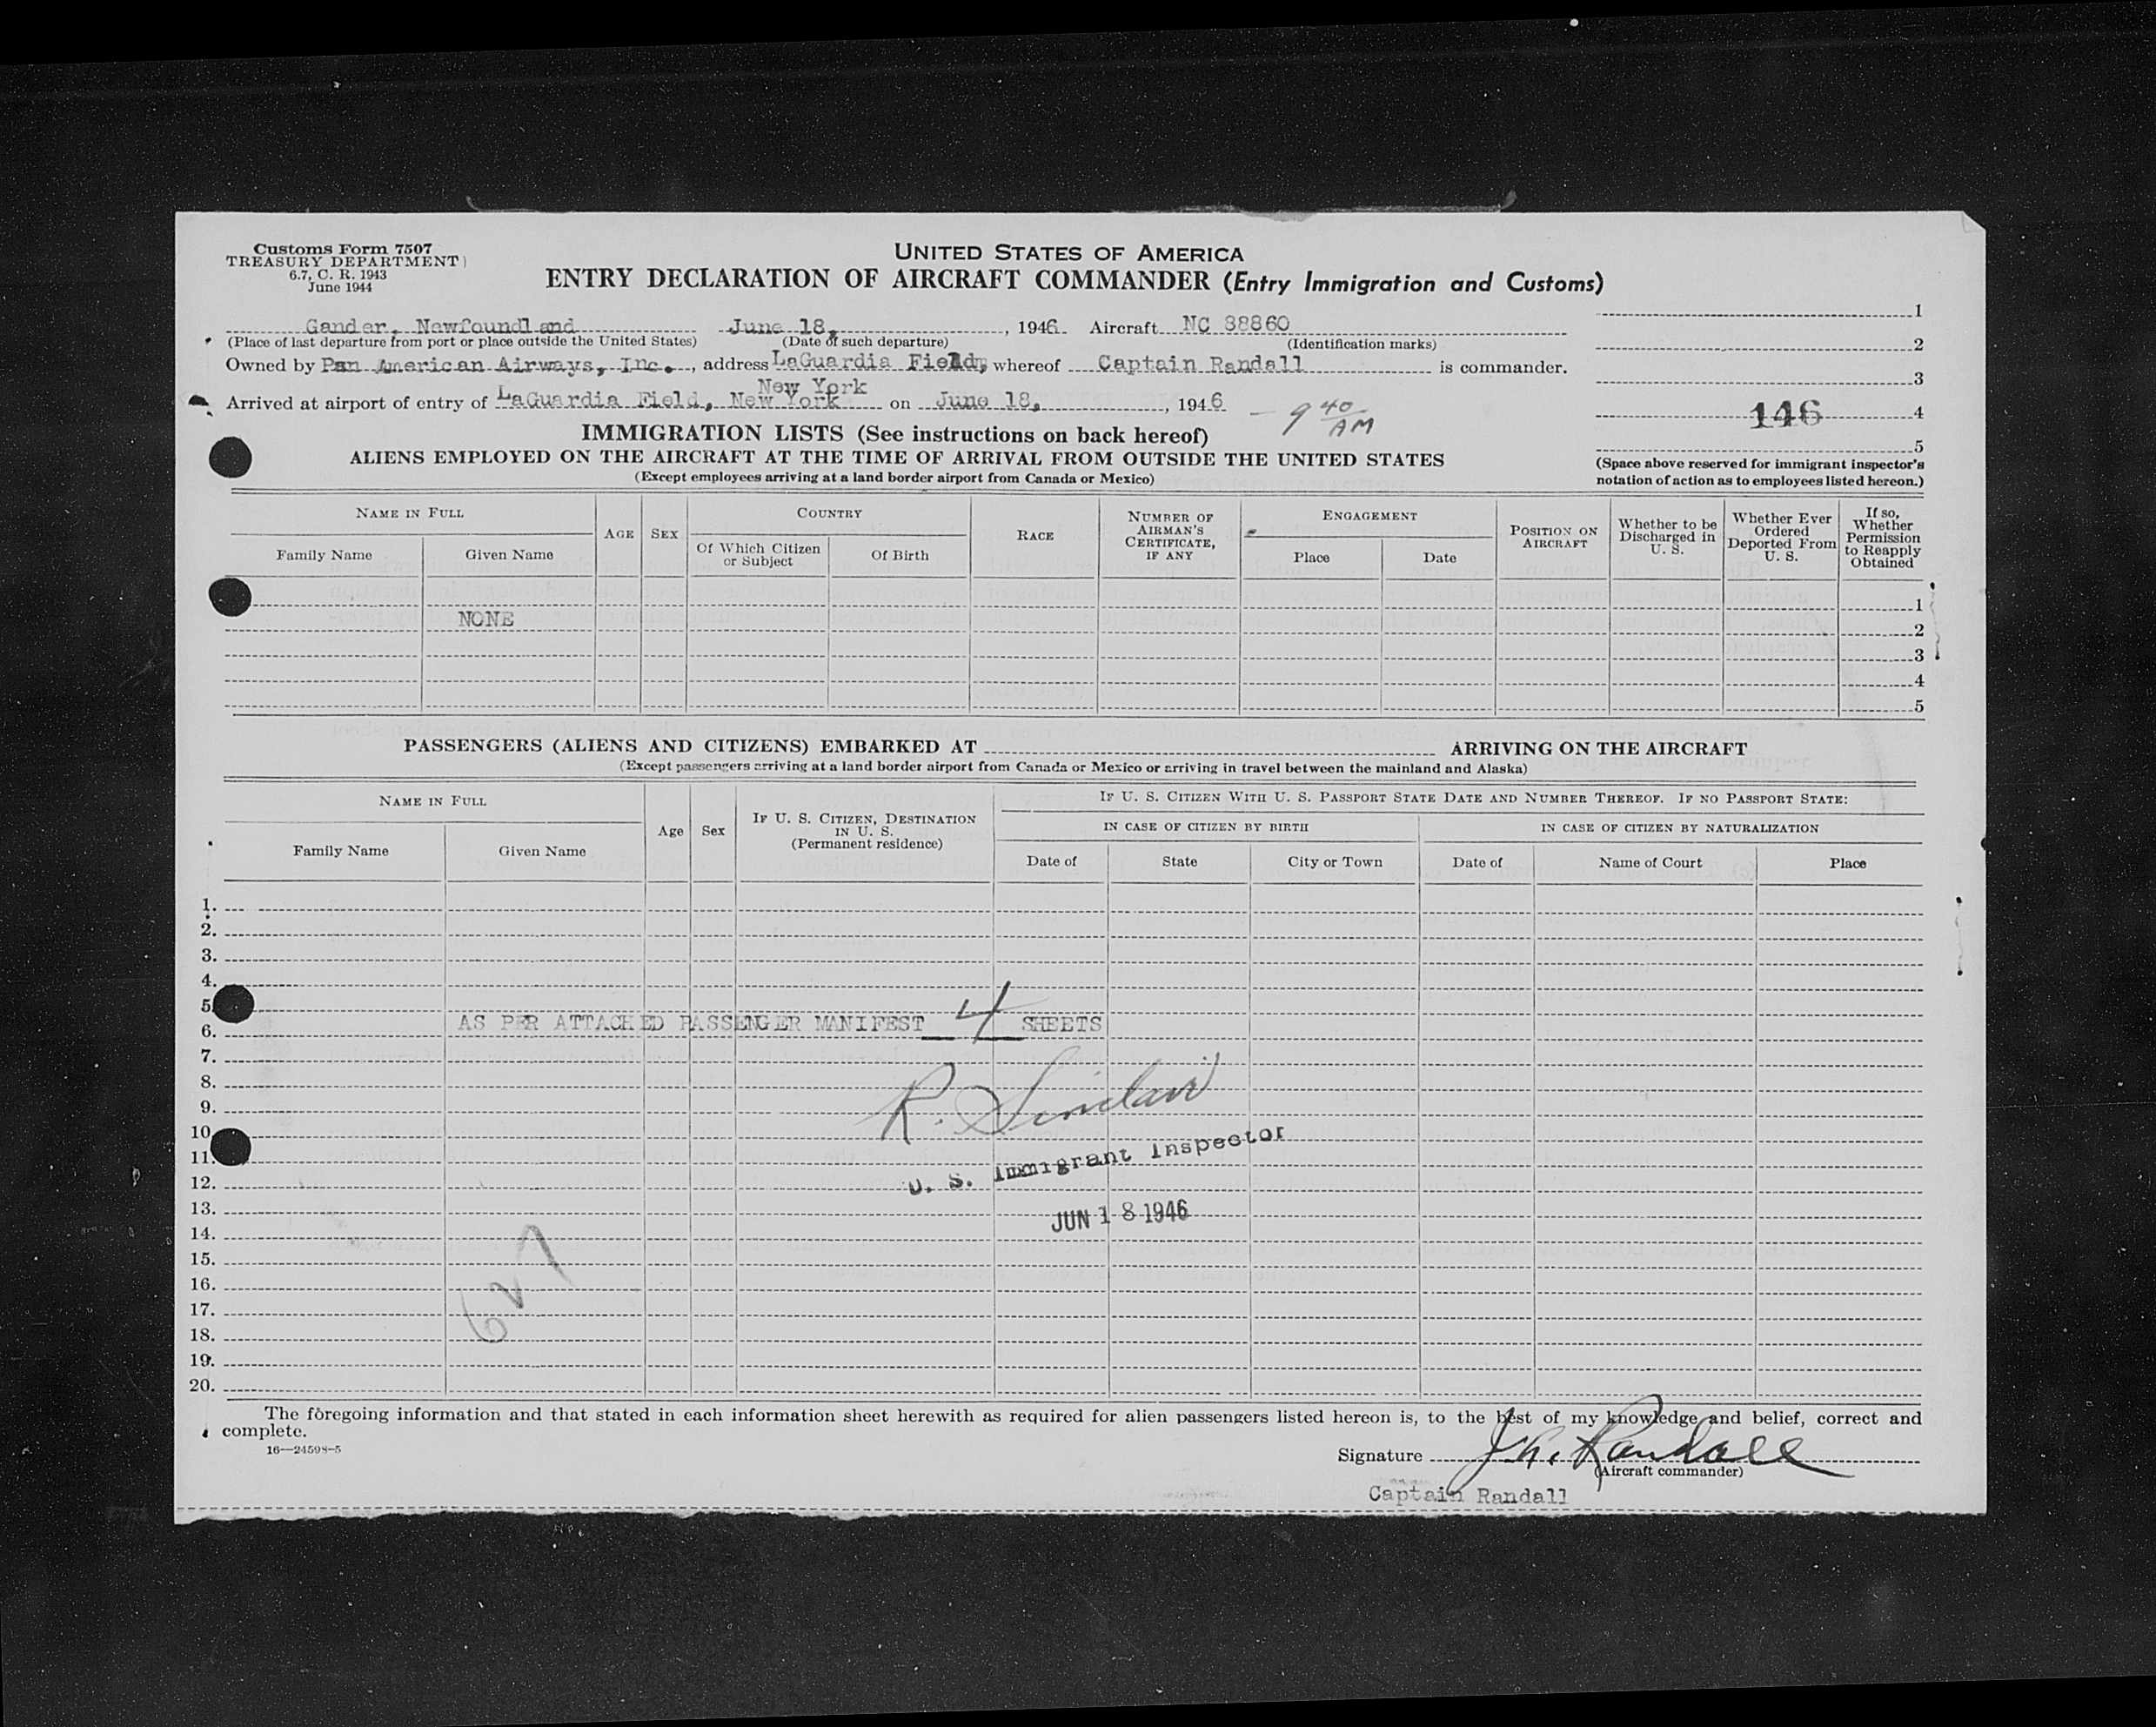 Customs Form 7507
TREASURY DEPARTMENT
6.7, C. R. 1943
June 1944
UNITED STATES OF AMERICA
ENTRY DECLARATION OF AIRCRAFT COMMANDER (Entry Immigration and Customs)
Gander, Newfoundland June 18, , 1946 Aircraft NC 88860
(Place of last departure from port or place outside the United States) (Date of such departure) (Identification marks)
Owned by Pan American Airways, Inc. , address LaGuardia Field, whereof Captain Randall is commander.
New York
Arrived at airport of entry of LaGuardia Field, New York on June 18, , 1946 - 9 40 AM
1
2
3
146 4
5
(Space above reserved for immigrant inspector's
notation of action as to employees listed hereon.)
IMMIGRATION LISTS (See instructions on back hereof)
ALIENS EMPLOYED ON THE AIRCRAFT AT THE TIME OF ARRIVAL FROM OUTSIDE THE UNITED STATES
(Except employees arriving at a land border airport from Canada or Mexico)
NAME IN FULL
Family Name Given Name
AGE
SEX
COUNTRY
Of Which Citizen or Subject Of Birth
RACE
NUMBER OF AIRMAN'S CERTIFICATE, IF ANY
ENGAGEMENT
Place Date
POSITION ON AIRCRAFT
Whether to be Discharged in U. S.
Whether Ever Ordered Deported From U. S.
If so, Whether Permission to Reapply Obtained
1
NONE
2
3
4
5
PASSENGERS (ALIENS AND CITIZENS) EMBARKED AT ARRIVING ON THE AIRCRAFT
(Except passengers arriving at a land border airport from Canada or Mexico or arriving in travel between the mainland and Alaska)
NAME IN FULL
Family Name Given Name
Age
Sex
IF U. S. CITIZEN, DESTINATION IN U. S.
(Permanent residence)
IF U. S. CITIZEN WITH U. S. PASSPORT STATE DATE AND NUMBER THEREOF. IF NO PASSPORT STATE:
IN CASE OF CITIZEN BY BIRTH IN CASE OF CITIZEN BY NATURALIZATION
Date of State City or Town Date of Name of Court Place
1.
2.
3.
4.
5
6. AS PER ATTACHED PASSENGER MANIFEST 4 SHEETS
7.
8.
R. Sinclair
9.
10
11.
U. S. Immigrant Inspector
12.
13.
JUN 18 1946
14.
15.
16.
627
17.
18.
19.
20.
The foregoing information and that stated in each information sheet herewith as required for alien passengers listed hereon is, to the best of my knowledge and belief, correct and
complete.
16—24598-5
Signature Randall
(Aircraft commander)
Captain Randall